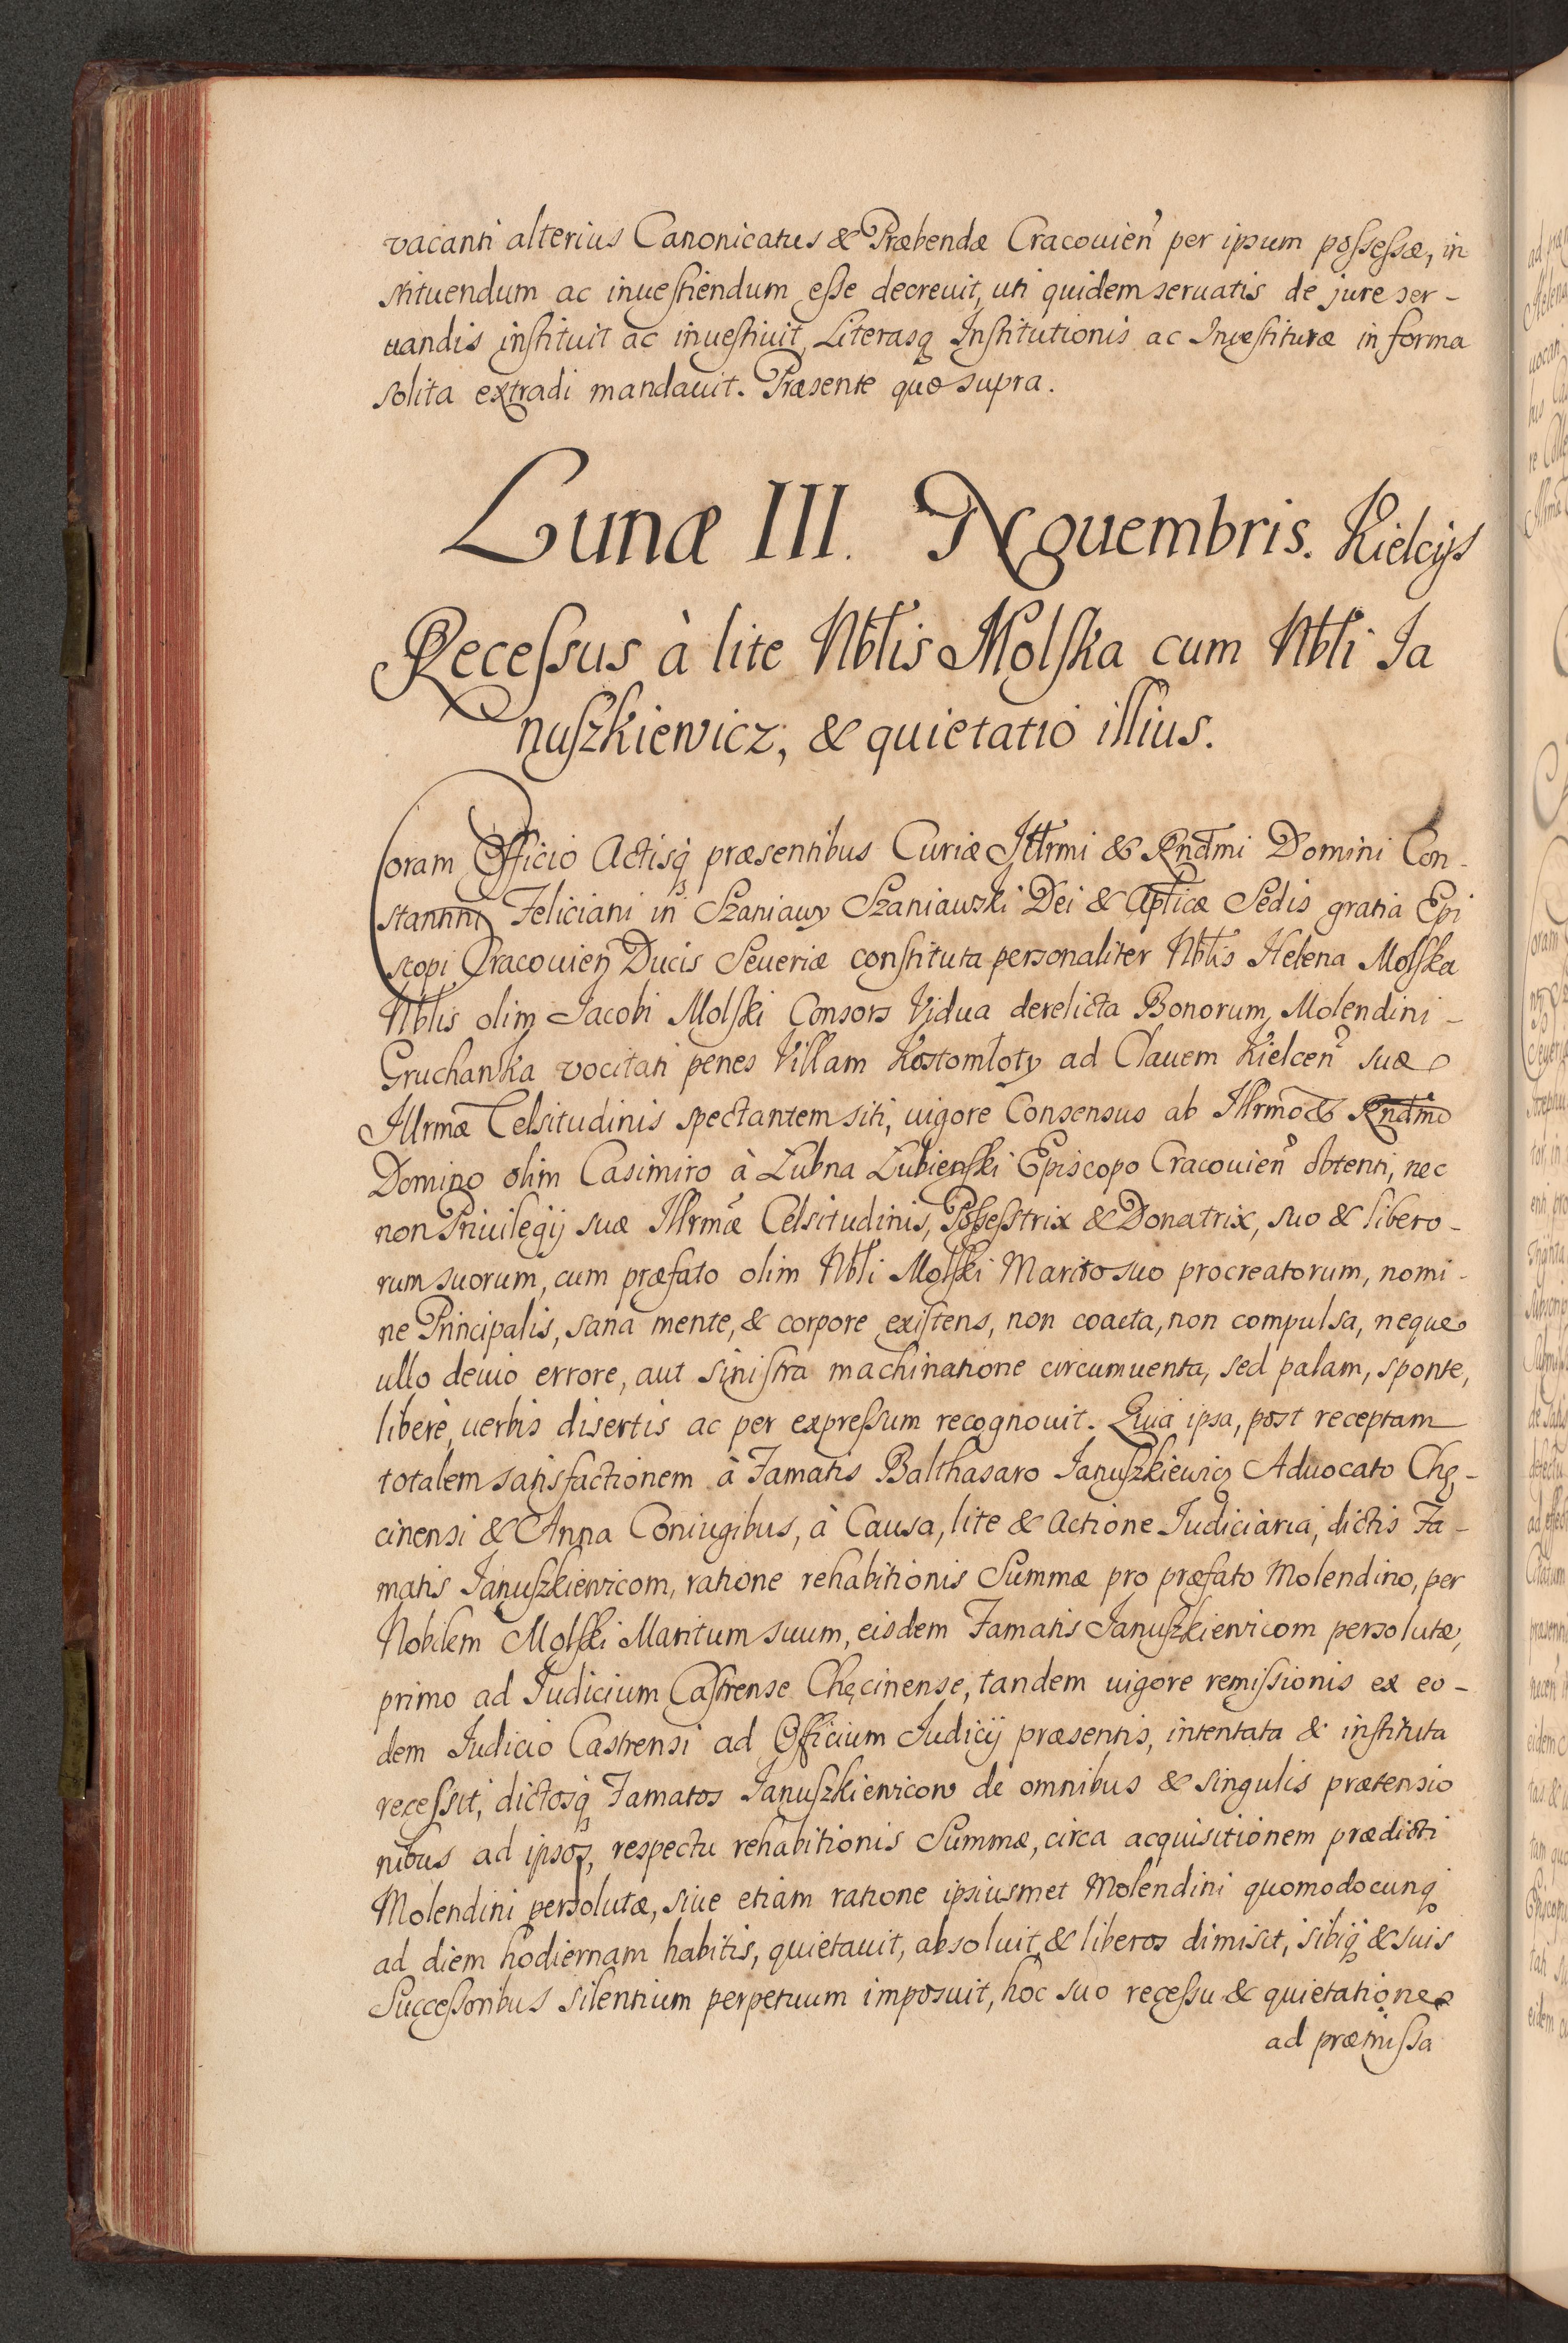 vacanti alterius Canonicatus & Præbendæ Cracouien̄ per ipsum possessæ, in
stituendum ac inuestiendum esse decreuit, uti quidem seruatis de jure ser-
uandis instituit ac inuestiuit, Literasq Institutionis ac Inuestituræ in forma
solita extradi mandauit. Præsente quo supra.
Lunæ III. Nouembris. Kielcijs
Recessus à lite Nbłis Molska cum Nbłi Ja
nuszkiewicz, & quietatio illius.
Coram Officio Actisq præsentibus Curiæ Illrmi & Rndmi Domini Con-
stantini Feliciani in Szaniawy Szaniawski Dei & Aplicæ Sedis gratia Epi
scopi Cracouien̄ Ducis Seueriæ constituta personaliter Nbłis Helena Molska
Nblis olim Jacobi Molski Consors Vidua derelicta Bonorum Molendini-
Gruchanka vocitati penes Villam Kostomłoty ad Clauem Kielcen̄ suæ
Illrmæ Celsitudinis spectantem siti, uigore Consensus ab Illrmo & Rndmo
Domino olim Casimiro à Łubna Łubienski Episcopo Cracouien̄ obtenti, nec
non Priuilegij suæ Illrmæ Celsitudinis, Possesstrix & Donatrix, suo & libero-
rum suorum, cum præfato olim Nbłi Molski Marito suo procreatorum, nomi-
ne Principalis, sana mente, & corpore existens, non coacta, non compulsa, neque
ullo deuio errore, aut sinistra machinatione circumuenta, sed palam, sponte,
liberè, uerbis disertis ac per expressum recognouit. Quia ipsa, post receptam
totalem satisfactionem à Famatis Balthasaro Januszkiewicz Aduocato Chę-
cinensi & Anna Coniugibus, à Causa, lite & Actione Judiciaria, dictis Fa-
matis Januszkiewicom, ratione rehabitionis Summæ pro præfato Molendino, per
Nobilem Molski Maritum suum, eisdem Famatis Januszkiewicom persolutæ,
primo ad Judicium Castrense Chęcinense, tandem uigore remissionis ex eo-
dem Judicio Castrensi ad Officium Judicij præsentis, intentata & instituta
recessit, dictosq Famatos Januszkiewicow de omnibus & singulis prætensio
nibus ad ipsos, respectu rehabitionis Summæ, circa acquisitionem prædicti
Molendini persolutæ, siue etiam ratione ipsiusmet Molendini quomodocunq
ad diem hodiernam habitis, quietauit, absoluit, & liberos dimisit, sibiq & suis
Successoribus silentium perpetuum imposuit, hoc suo recessu & quietatione
ad præmissa